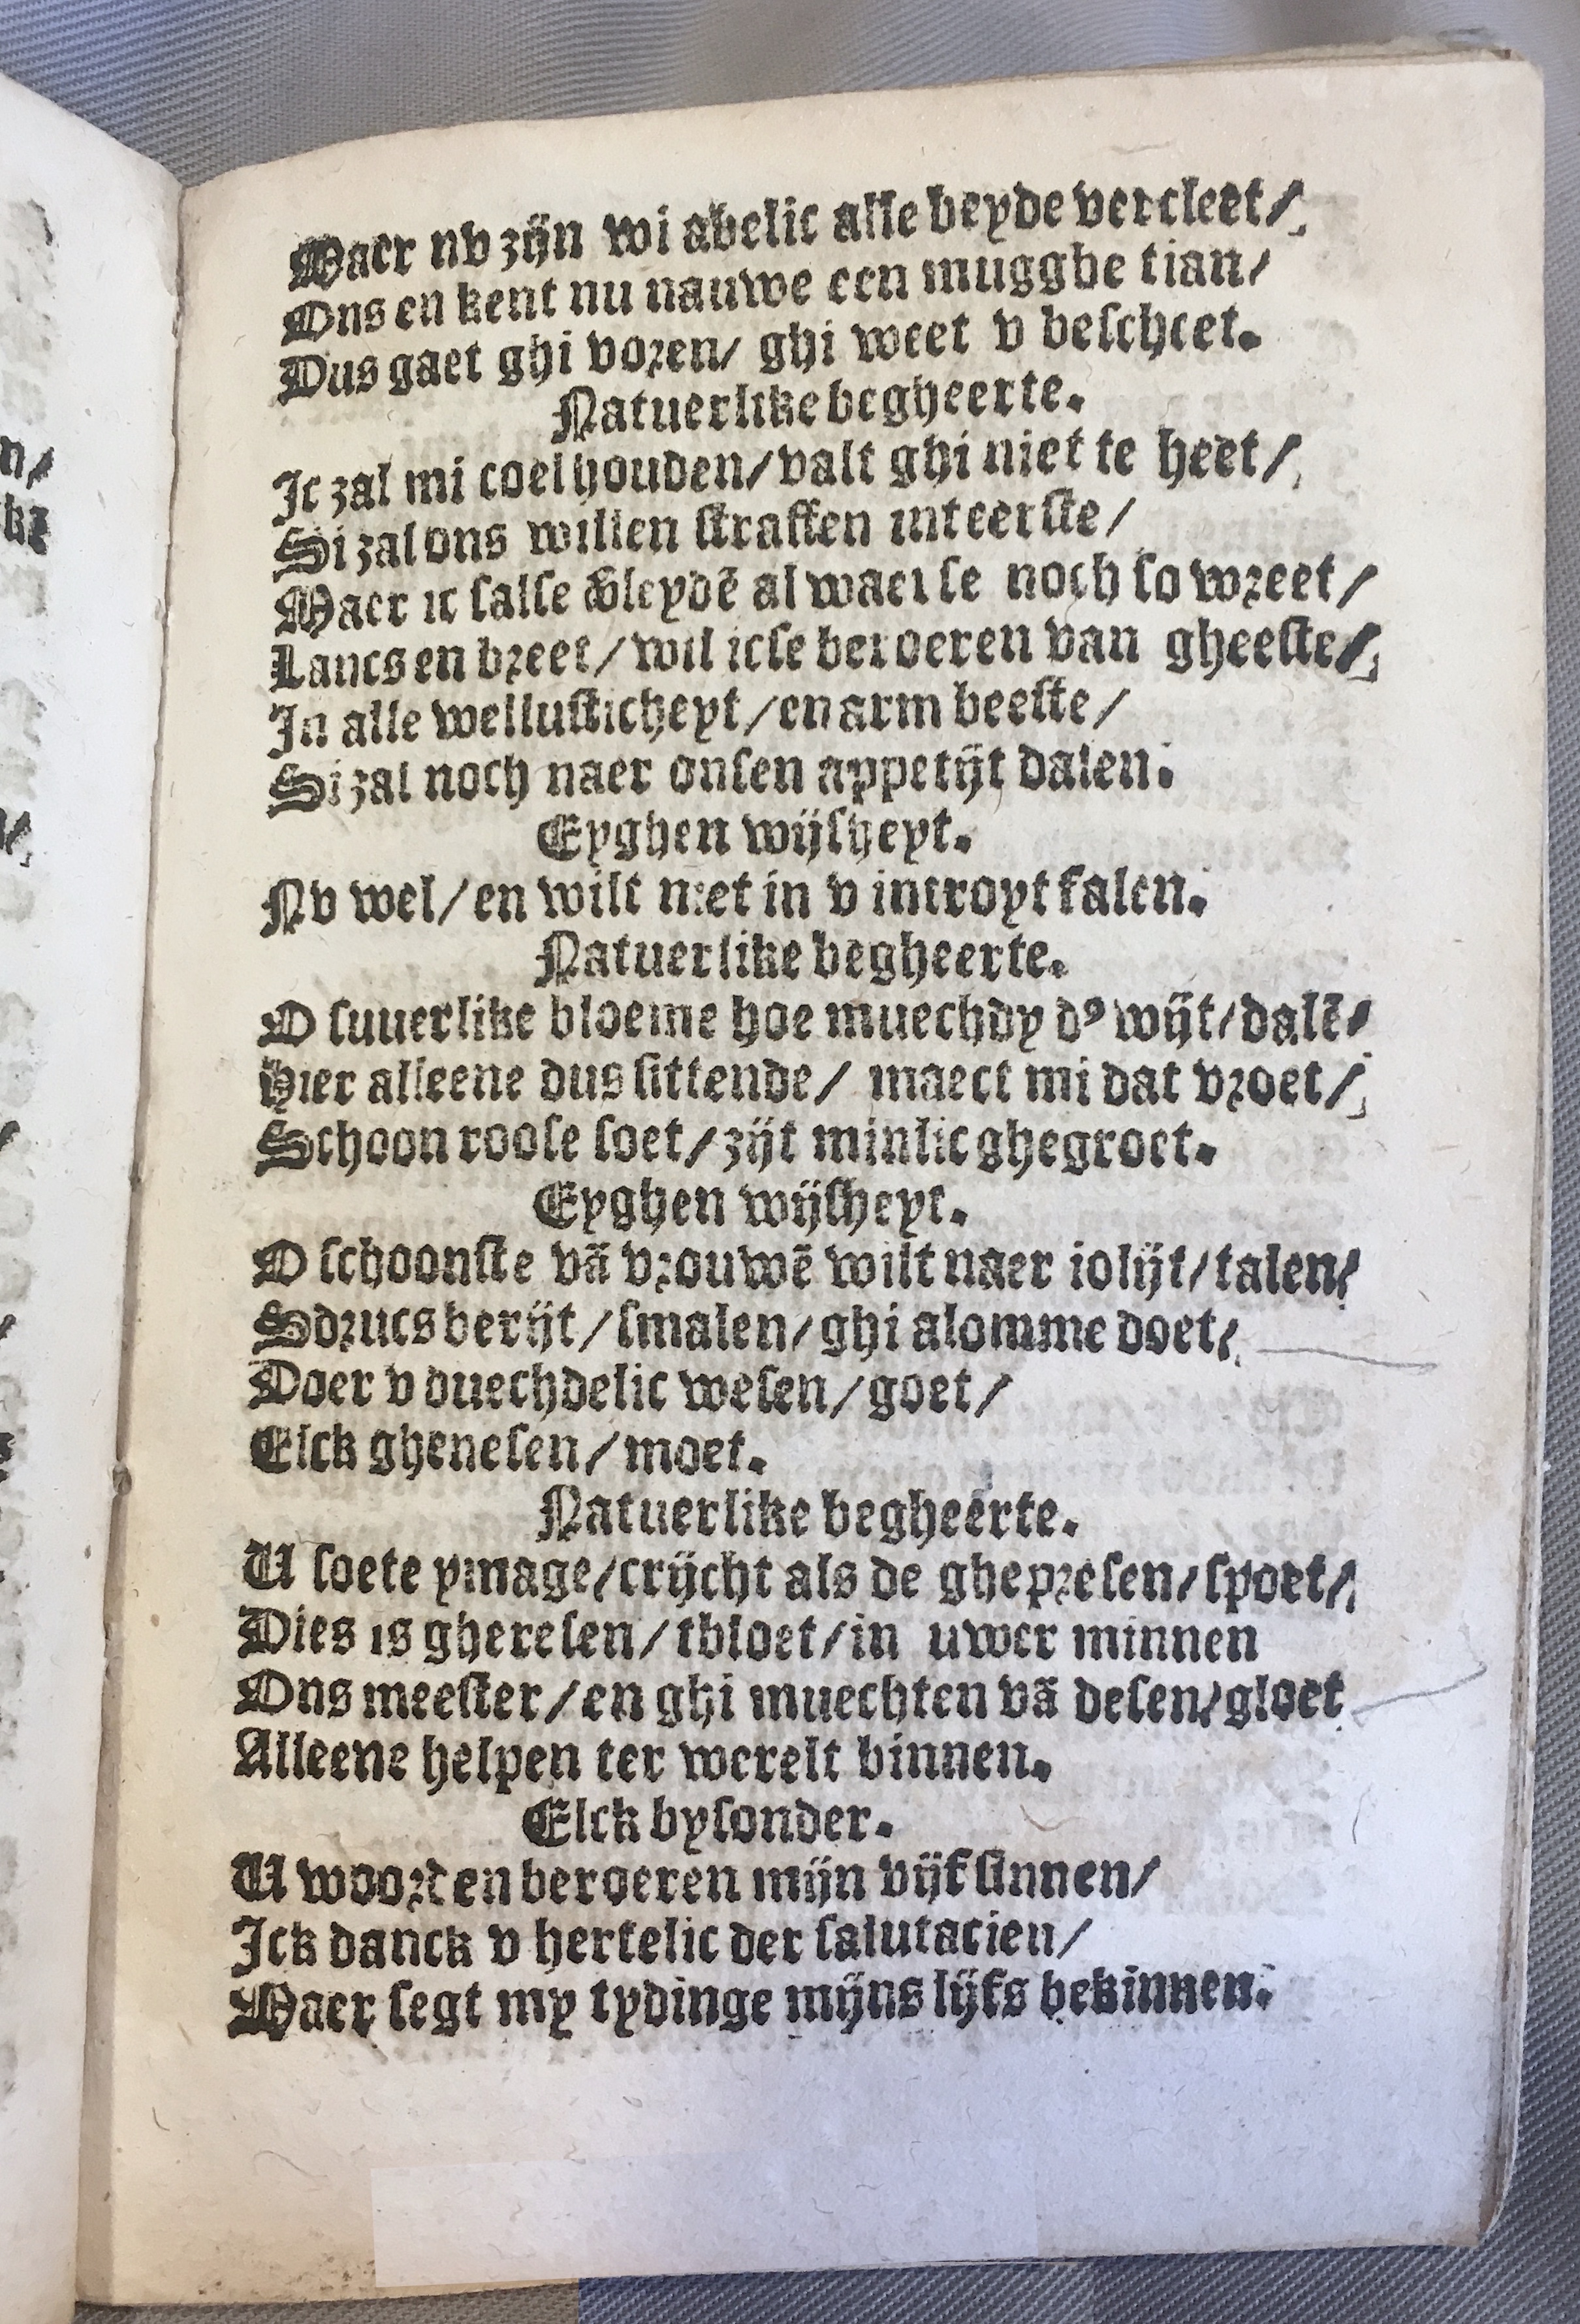 Maer nv zijn wi abelic alle beyde vercleet/
Ons en kent nu nauwe een mugghe tian/
Dus gaet ghi voren/ ghi weet v bescheet.
Natuerlike begheerte.
Ic zal mi coel houden/ valt ghi niet te heet/
Si zal ons willen straffen inteerste/
Maer ic salse v̄leydē al waerse noch so wreet/
Lancs en breet/ wil icse beroeren van gheeste/
In alle wellusticheyt/ en arm beeste/
Si zal noch naer onsen appetijt dalen.
Eyghen wijsheyt.
Nv wel/ en wilt niet in v introyt falen.
Natuerlike begheerte.
O suuerlike bloeme hoe muechdy dꝰ wijt/ dalē/
Hier alleene dus sittende/ maect mi dat vroet/
Schoon roose soet/ zijt minlic ghegroet.
Eyghen wijsheyt.
O schoonste vā vrouwē wilt naer iolijt/ talen/
Sdrucs berijt/ smalen/ ghi alomme doet/
Doer v duechdelic wesen/ goet/
Elck ghenesen/ moet.
Natuerlike begheerte.
U soete ymage/ crijcht als de ghepresen/ spoet/
Dies is gheresen/ tbloet/ in uwer minnen
Ons meester/ en ghi muechten vā desen/ gloet
Alleene helpen ter werelt binnen.
Elck bysonder.
U woorden beroeren mijn vijf sinnen/
Ick danck v hertelic der salutacien/
Maer segt my tydinge mijns lijfs bekinnen.
n/
k: